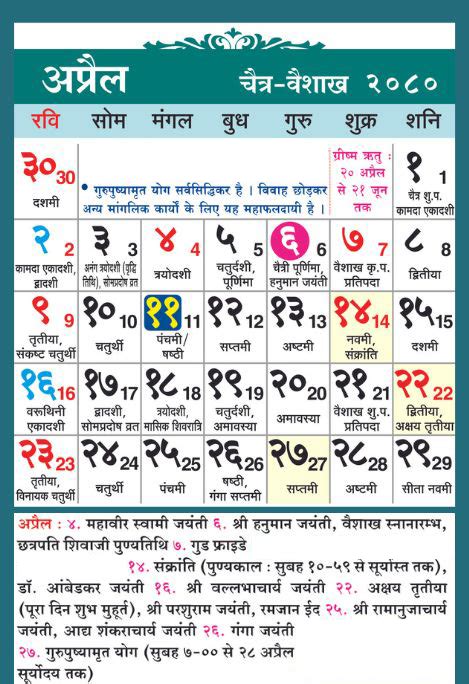 अप्रैल चैत्र-वैशाख २०८०
रवि सोम मंगल बुध गुरु शुक्र शनि
३० 30
दशमी
• गुरुपुष्यामृत योग सर्वसिद्धिकर है । विवाह छोड़कर
अन्य मांगलिक कार्यों के लिए यह महाफलदायी है ।
ग्रीष्म ऋतु :
२० अप्रैल
से २१ जून
तक
१ 1
चैत्र शु.प.
कामदा एकादशी
२ 2
कामदा एकादशी,
द्वादशी
३ 3
अनंग त्रयोदशी (वृद्धि
तिथि), सोमप्रदोष व्रत
४ 4
त्रयोदशी
५ 5
चतुर्दशी,
पूर्णिमा
६ 6
चैत्री पूर्णिमा,
हनुमान जयंती
७ 7
वैशाख कृ.प.
प्रतिपदा
८ 8
द्वितीया
९ 9
तृतीया,
संकष्ट चतुर्थी
१० 10
चतुर्थी
११ 11
पंचमी/
षष्ठी
१२ 12
सप्तमी
१३ 13
अष्टमी
१४ 14
नवमी,
संक्रांति
१५ 15
दशमी
१६ 16
वरूथिनी
एकादशी
१७ 17
द्वादशी,
सोमप्रदोष व्रत
१८ 18
त्रयोदशी,
मासिक शिवरात्रि
१९ 19
चतुर्दशी,
अमावस्या
२० 20
अमावस्या
२१ 21
वैशाख शु.प.
प्रतिपदा
२२ 22
द्वितीया,
अक्षय तृतीया
२३ 23
तृतीया,
विनायक चतुर्थी
२४ 24
चतुर्थी
२५ 25
पंचमी
२६ 26
षष्ठी,
गंगा सप्तमी
२७ 27
सप्तमी
२८ 28
अष्टमी
२९ 29
सीता नवमी
अप्रैल : ४. महावीर स्वामी जयंती ६. श्री हनुमान जयंती, वैशाख स्नानारम्भ,
छत्रपति शिवाजी पुण्यतिथि ७. गुड फ्राइडे
१४. संक्रांति (पुण्यकाल : सुबह १०-५९ से सूर्यास्त तक),
डॉ. आंबेडकर जयंती १६. श्री वल्लभाचार्य जयंती २२. अक्षय तृतीया
(पूरा दिन शुभ मुहूर्त), श्री परशुराम जयंती, रमजान ईद २५. श्री रामानुजाचार्य
जयंती, आद्य शंकराचार्य जयंती २६. गंगा जयंती
२७. गुरुपुष्यामृत योग (सुबह ७-०० से २८ अप्रैल
सूर्योदय तक)